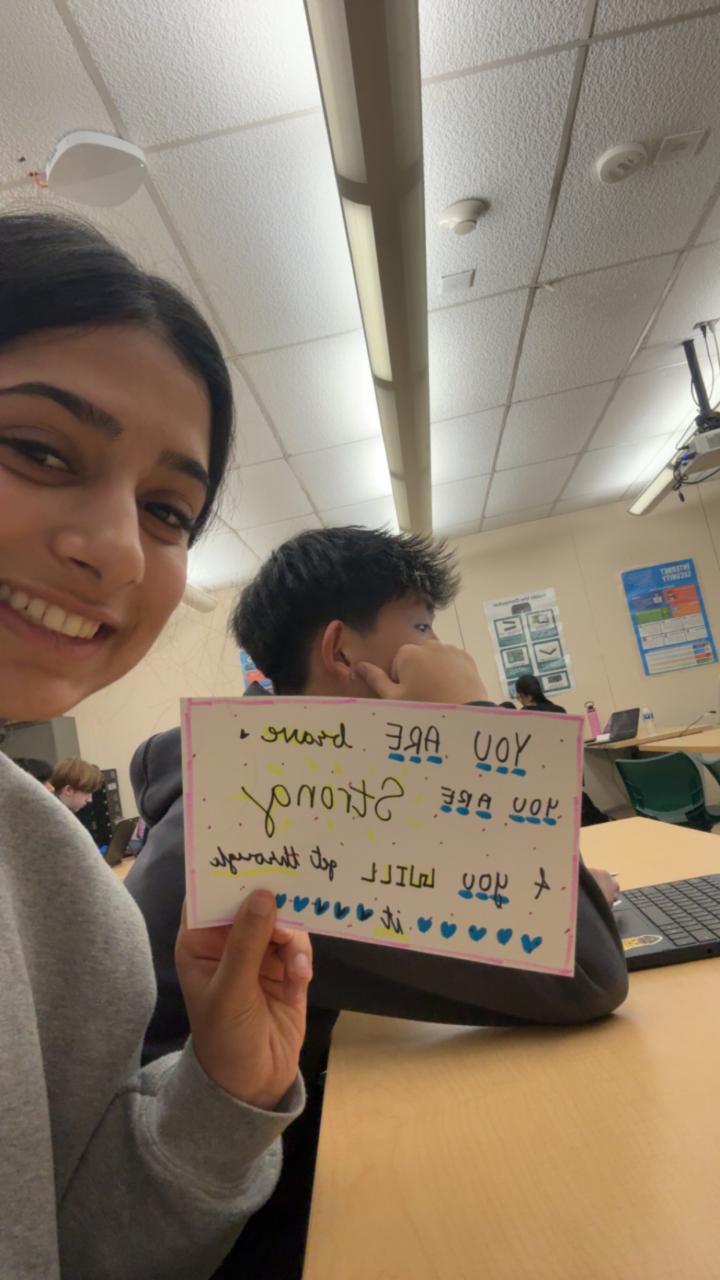 YOU ARE brave.
YOU ARE Strong
& you WILL get through
it
INTERNET
SECURITY